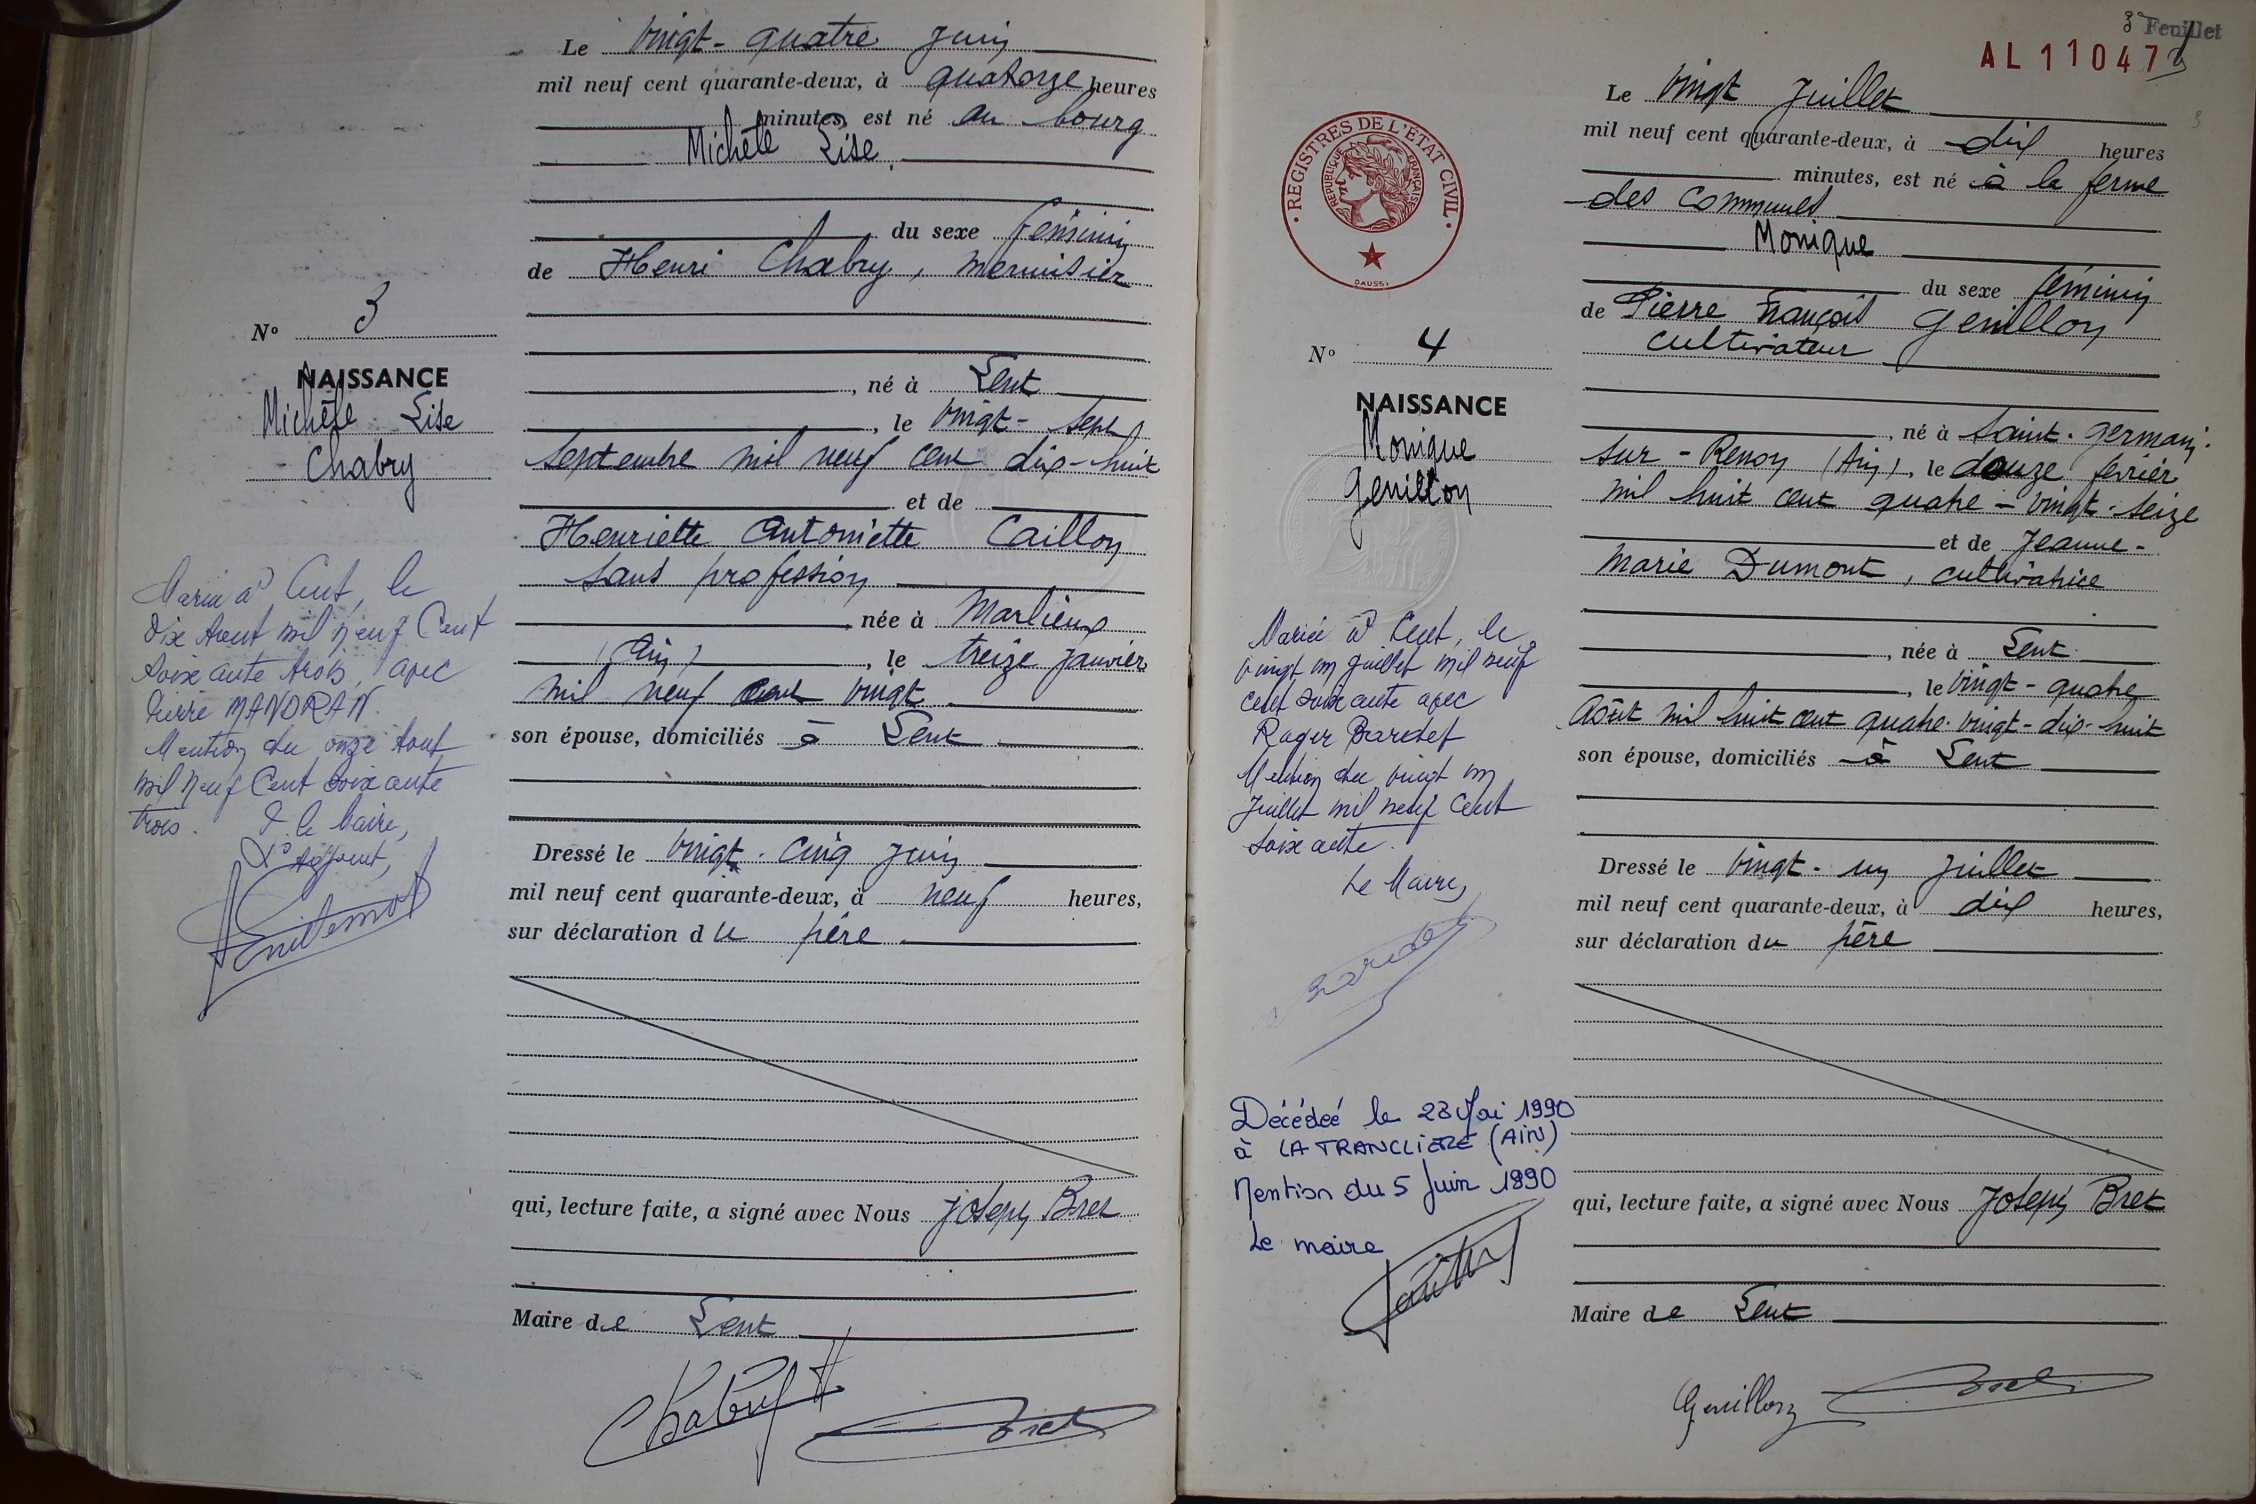 Le vingt-quatre juin
mil neuf cent quarante-deux, à quatorze heures
minutes, est né au bourg
Michèle Lise
du sexe féminin
de Henri Chabry, menuisier
N° 3
NAISSANCE
Michèle Lise
Chabry
, né à Lent
, le vingt-sept
septembre mil neuf cent dix-huit
et de
Henriette Antoinette Caillon
sans profession
née à Marlieux
(Ain) , le treize janvier
mil neuf cent vingt
son épouse, domiciliés à Lent
Mariée à Lent, le
dix Aout mil neuf Cent
soixante trois, avec
Pierre MANDRAN.
Mention du onze Aout
mil neuf Cent soixante
trois. P. le Maire,
L'Adjoint,
Dressé le vingt-cinq juin
mil neuf cent quarante-deux, à neuf heures,
sur déclaration du père
qui, lecture faite, a signé avec Nous Joseph Bret
Maire de Lent
Chabry H
Bret
3e Feuillet
AL 110473
3
Le vingt juillet
mil neuf cent quarante-deux, à dix heures
minutes, est né à la ferme
des Communes
Monique
du sexe féminin
de Pierre François Genillon
cultivateur
REGISTRES DE L'ETAT CIVIL
REPUBLIQUE FRANÇAISE
DAUSSI
N° 4
NAISSANCE
Monique
Genillon
, né à Saint-Germain-
sur-Renon (Ain), le douze février
mil huit cent quatre-vingt-seize
et de Jeanne-
Marie Dumont, cultivatrice
, née à Lent
, le vingt-quatre
Août mil huit cent quatre-vingt-dix-huit
son épouse, domiciliés à Lent
Mariée à Lent, le
vingt un juillet mil neuf
cent soixante avec
Roger Bardet
Mention du vingt un
Juillet mil neuf Cent
soixante.
Le Maire,
Décédée le 28 Mai 1990
à LA TRANCLIERE (Ain)
Mention du 5 Juin 1990
Le maire
Dressé le vingt-un juillet
mil neuf cent quarante-deux, à dix heures,
sur déclaration du père
qui, lecture faite, a signé avec Nous Joseph Bret
Maire de Lent
Genillon
Bret